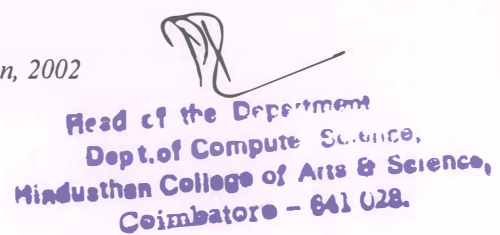 n, 2002
Head of the Department
Dept.of Compute Science,
Hindusthan College of Arts & Science,
Coimbatore - 641 028.